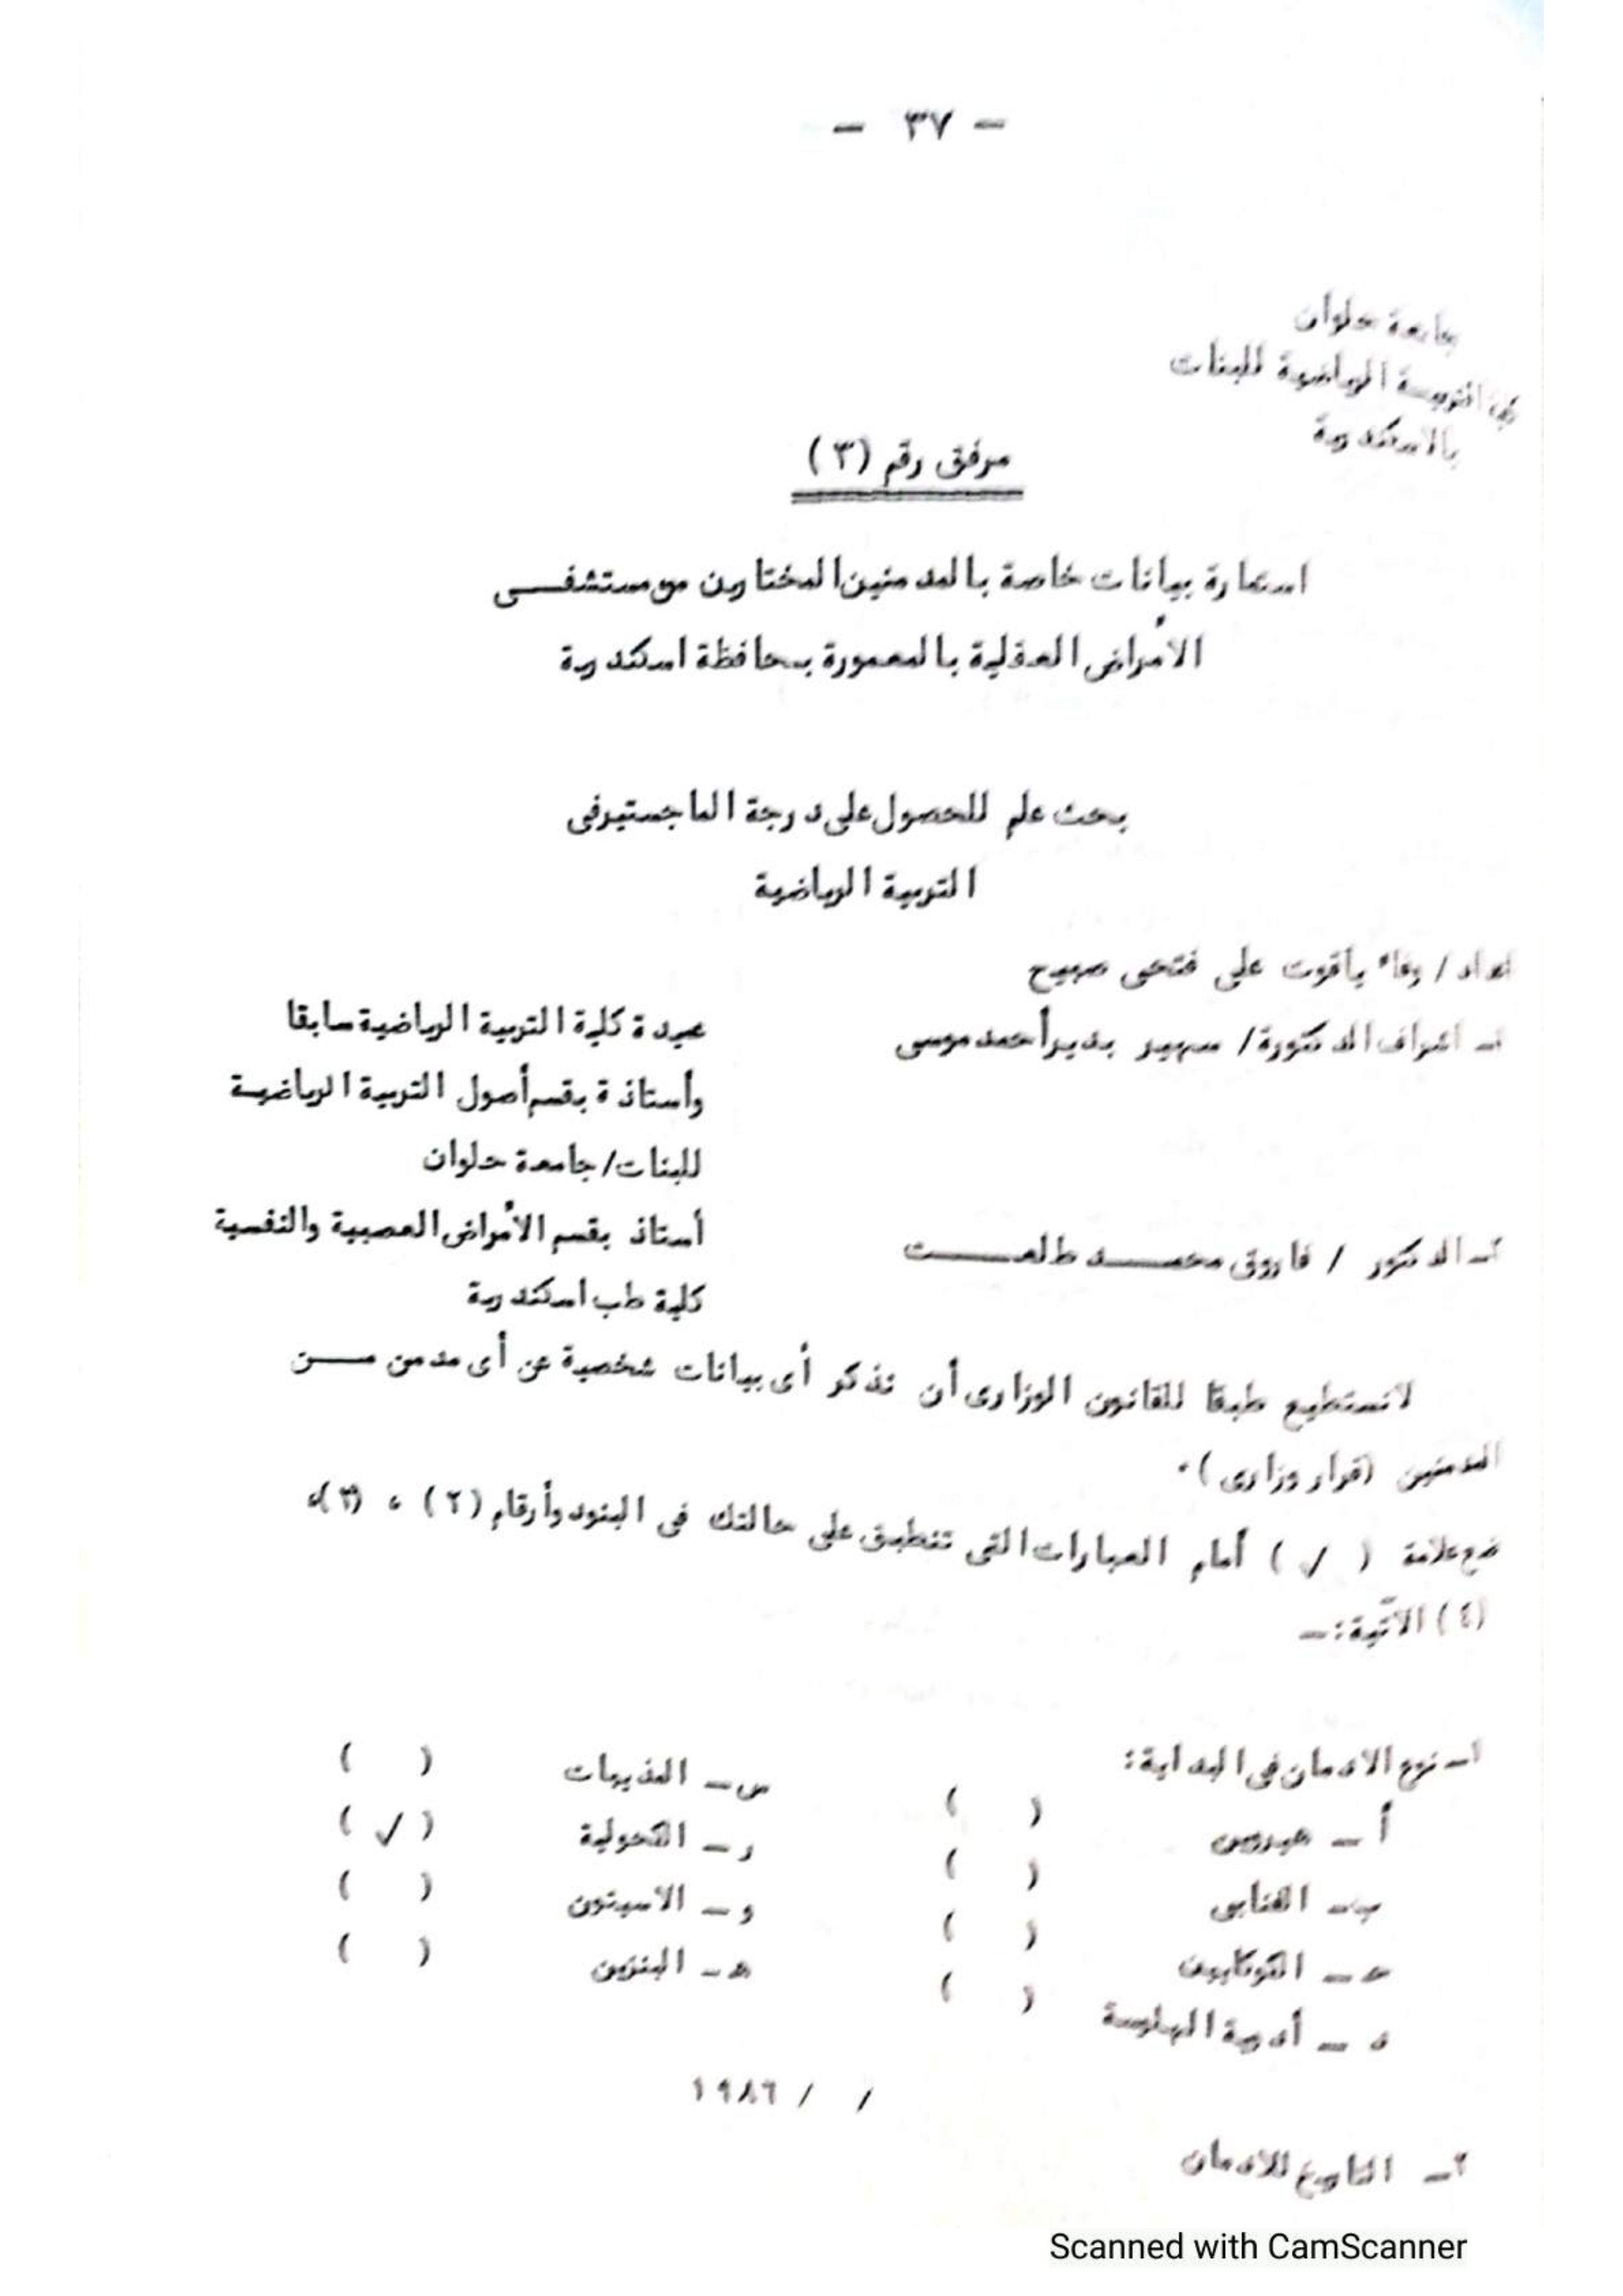 - ٣٧ -
جامعة حلوان
التربيسة الرياضية للبنات
بالاسكندرية
مرفق رقم (٣)
استمارة بيانات خاصة بالمدمنين المختارين من مستشفــى
الأمراض العقلية بالمعمورة بمحافظة اسكندرية
بحث علم للحصول على درجة الماجستير فى
التربية الرياضية
اعداد / وفاء ياقوت على فتحى صبيح
اشراف الدكتورة / سهير بدير أحمد موسى
عميدة كلية التربية الرياضية سابقا
وأستاذة بقسم أصول التربية الرياضيـة
للبنات / جامعة حلوان
٢ـ الدكتور / فاروق محمــد طلعــــت
أستاذ بقسم الأمراض العصبية والنفسية
كلية طب اسكندرية
لانستطيع طبقا للقانون الوزارى أن نذكر أى بيانات شخصية عن أى مدمن مـــن
المدمنين (قرار وزارى) ٠
ضع علامة ( √ ) أمام العبارات التى تنطبق على حالتك فى البنود وأرقام (٢) ، (٣)،
(٤) الآتية :ـ
١ـ نوع الادمان فى البداية :
أ ـ هيروين ( )
ب ـ القنابى ( )
حـ ـ الكوكايين ( )
د ـ أدوية الهلوسة ( )
س ـ المذيبات ( )
ر ـ الكحولية ( √ )
و ـ الاسيتون ( )
هـ ـ البنزين ( )
/ / ١٩٨٦
٢ـ التاريخ للادمان
Scanned with CamScanner